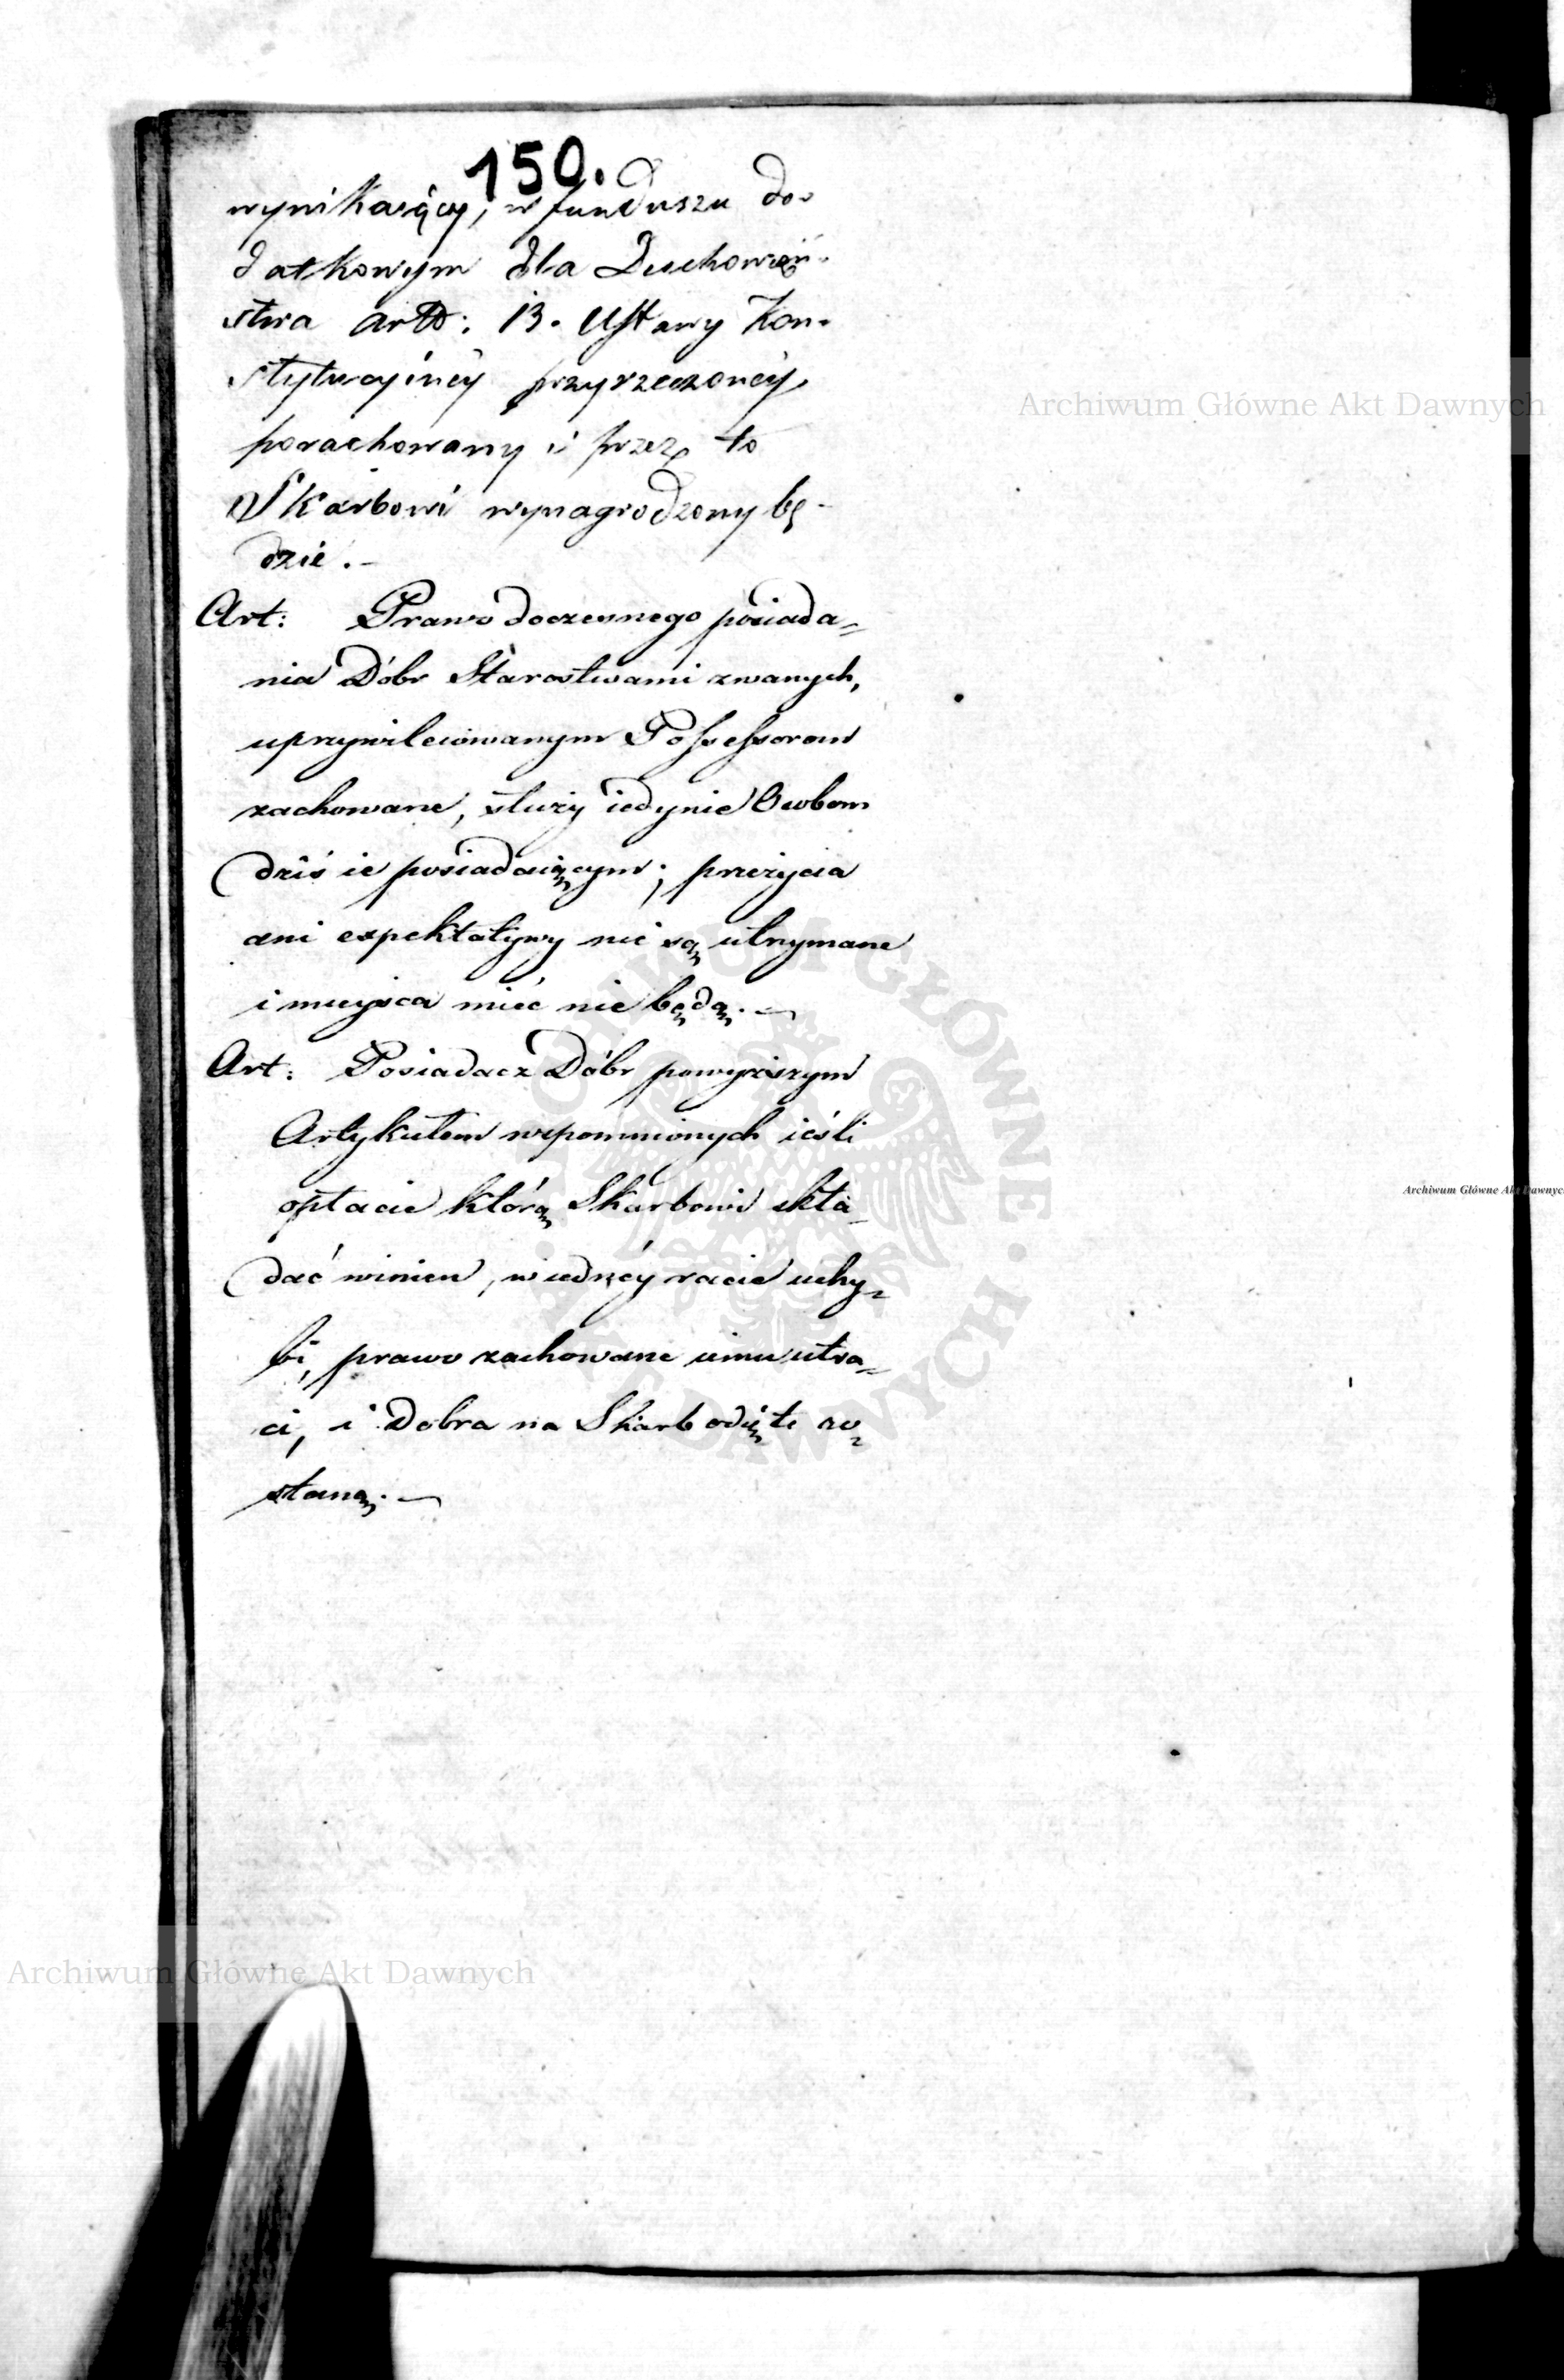 150.
wynikaiący, w funduszu do-
datkowym dla Duchowień-
stwa artt: 13. Ustawy Kon-
stytucyiney przyrzeczonéy,
porachowany i przez to
Skarbowi wynagrodzony bę-
dzie.-
Art: Prawo doczesnego posiada=
nia Dóbr Starostwami zwanych,
uprzywileiowanym Possessorom
zachowane, służy iedynie Osobom
dziś ie posiadaiącym; przeżycia
ani expektatywy nie są utrzymane
i mieysca mieć nie będą.—
Art: Posiadacz Dóbr powyższym
Artykułem wspomnionych ieśli
opłacie którą Skarbowi skła-
dać winien, w iednéy racie uchy=
bi, prawo zachowane iemu utra=
ci, i Dobra na Skarb odięte zo=
staną.—
Archiwum Główne Akt Dawnych
Archiwum Główne Akt Dawnych
Archiwum Główne Akt Dawnyc
ARCHIWUM GŁÓWNE · AKT DAWNYCH ·